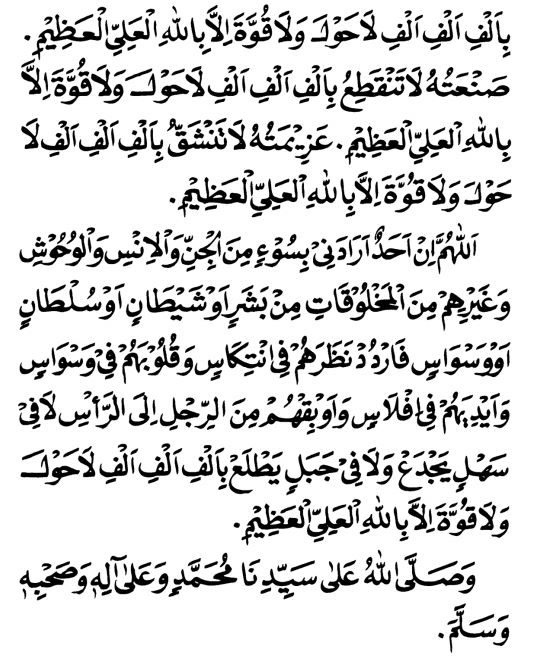 بِاَلْفِ اَلْفِ اَلْفِ لَا حَوْلَ وَلَا قُوَّةَ اِلَّا بِاللهِ الْعَلِيِّ الْعَظِيْمِ.
صَنْعَتُهُ لَا تَنْقَطِعُ بِاَلْفِ اَلْفِ اَلْفِ لَا حَوْلَ وَلَا قُوَّةَ اِلَّا
بِاللهِ الْعَلِيِّ الْعَظِيْمِ. عَزِيْمَتُهُ لَا تَنْشَقُّ بِاَلْفِ اَلْفِ اَلْفِ لَا
حَوْلَ وَلَا قُوَّةَ اِلَّا بِاللهِ الْعَلِيِّ الْعَظِيْمِ.
اَللّٰهُمَّ اِنْ اَحَدٌ اَرَادَنِيْ بِسُوْءٍ مِنَ الْجِنِّ وَالْاِنْسِ وَالْوُحُوْشِ
وَغَيْرِهِمْ مِنَ الْمَخْلُوْقَاتِ مِنْ بَشَرٍ اَوْ شَيْطَانٍ اَوْ سُلْطَانٍ
اَوْ وَسْوَاسٍ فَارْدُدْ نَظَرَهُمْ فِي انْتِكَاسٍ وَقُلُوْبَهُمْ فِيْ وَسْوَاسٍ
وَاَيْدِيَهُمْ فِيْ اِفْلَاسٍ وَاَوْبِقْهُمْ مِنَ الرِّجْلِ اِلَى الرَّأْسِ لَا فِيْ
سَهْلٍ يَجْدَعْ وَلَا فِيْ جَبَلٍ يَطْلَعْ بِاَلْفِ اَلْفِ اَلْفِ لَا حَوْلَ
وَلَا قُوَّةَ اِلَّا بِاللهِ الْعَلِيِّ الْعَظِيْمِ.
وَصَلَّى اللهُ عَلٰى سَيِّدِنَا مُحَمَّدٍ وَعَلٰى آلِهٖ وَصَحْبِهٖ
وَسَلَّمَ.